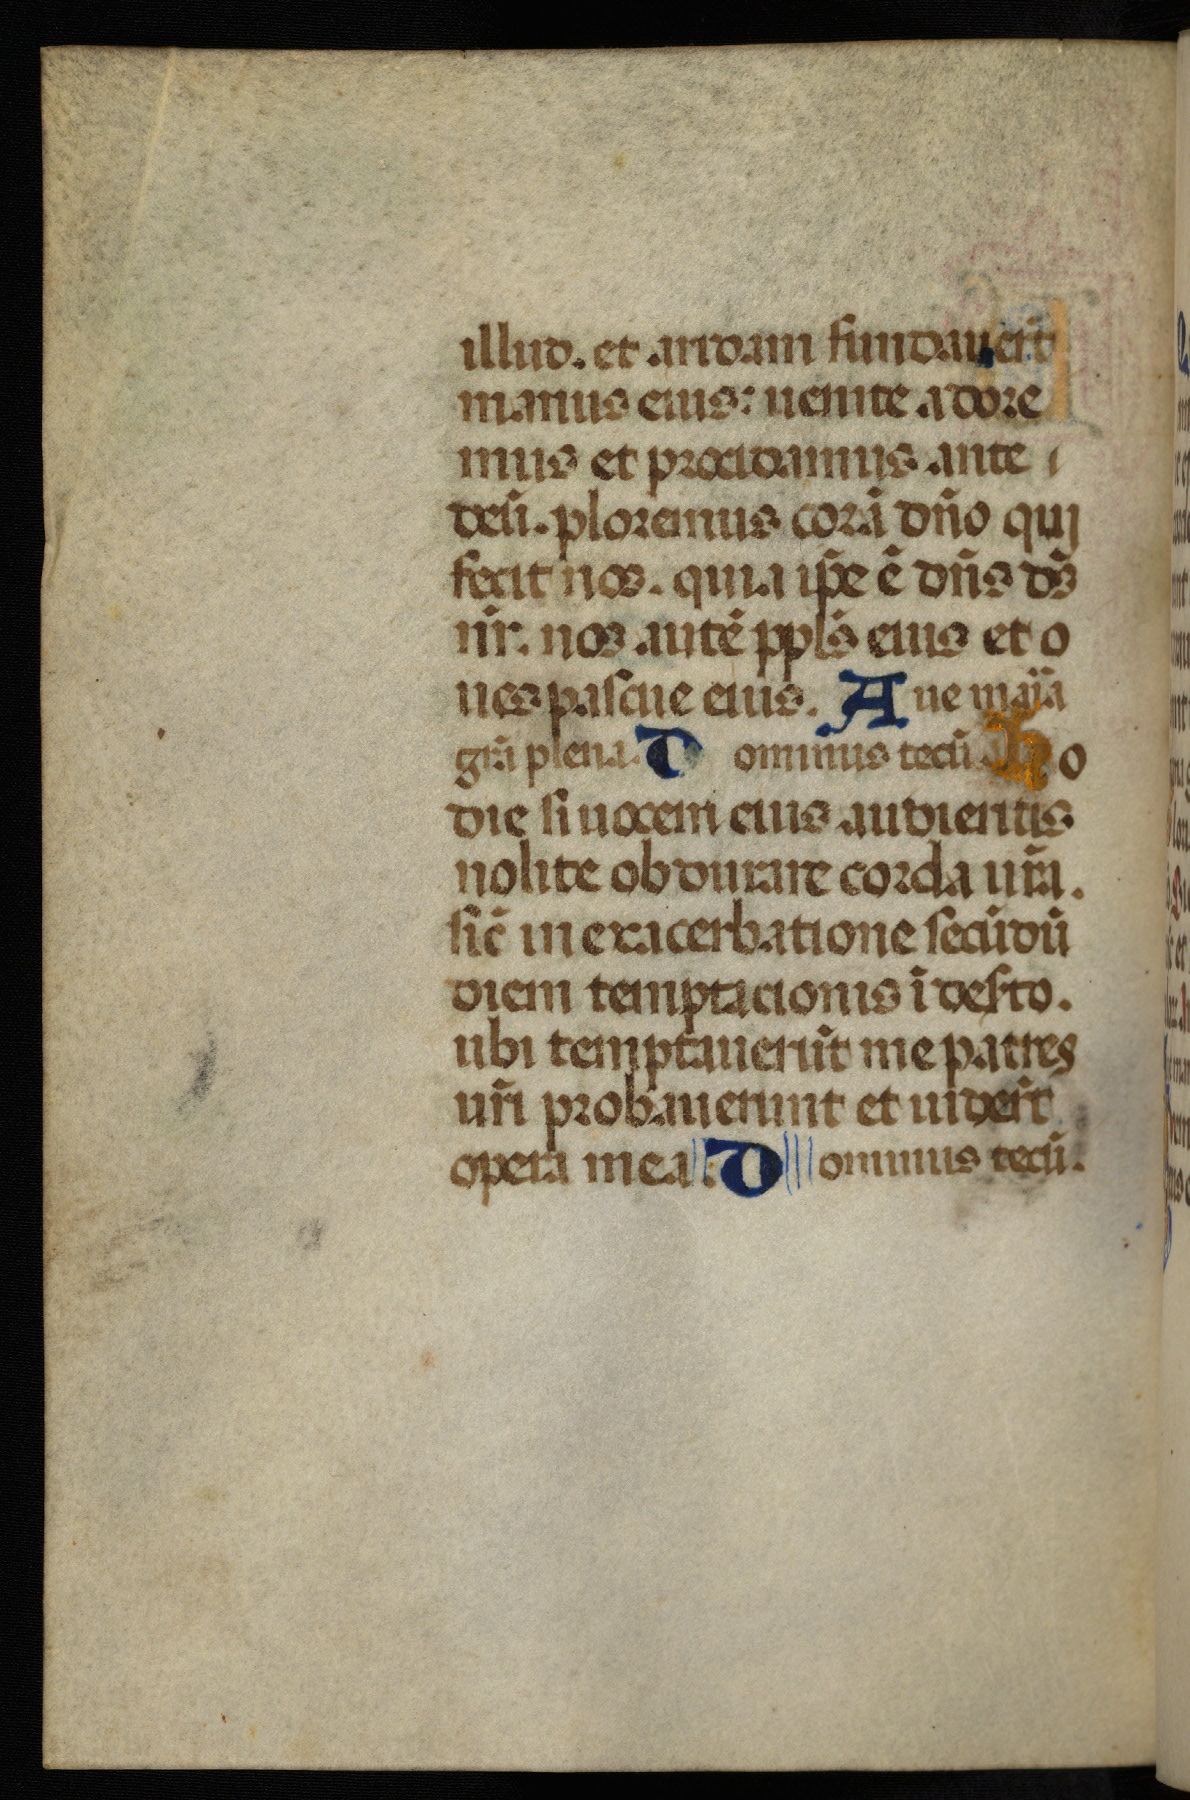 illud. et aridam fundauer̄t
manus eius: uenite adore
mus et procidamus ante
deū. ploremus corā dn̄o qui
fecit nos. quia ip̄e ē dn̄s ds̄
nr̄. nos autē ppl̄s eius et o
ues pascue eius. Aue maria
gr̄a plena. Dominus tecū. Ho
die si uocem eius audieritis
nolite obdurare corda ur̄a.
sic̄ in exacerbatione secūdū
diem temptacionis ī desto.
ubi temptauerūt me patres
ur̄i probauerunt et uider̄t
opera mea. Dominus tecū.